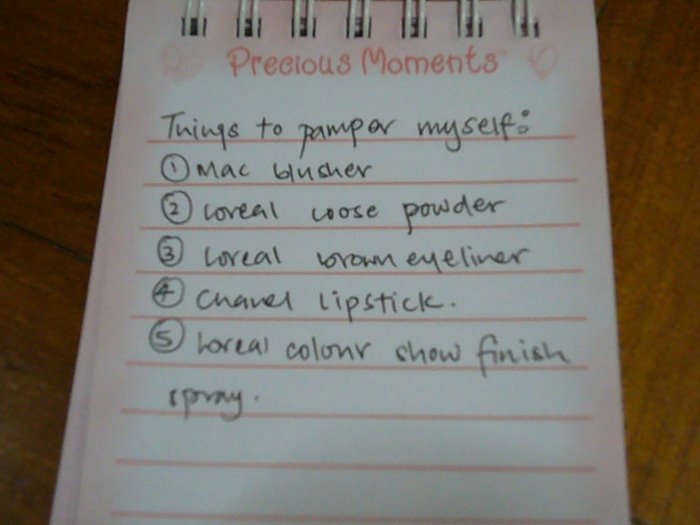 Precious Moments
Things to pamper myself:
① Mac blusher
② Loreal loose powder
③ Loreal brown eyeliner
④ Chanel lipstick.
⑤ Loreal colour show finish
spray.